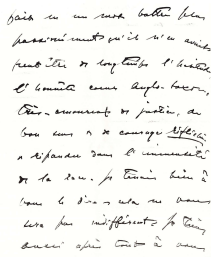 fait en un mot battre plus
passionnément qu'il n'en avait
peut être de longtemps l'habitude
l'honnête cœur Anglo-Saxon,
très-amoureux de justice, de
bon sens et de courage réfléchi
a répandu dans l'immensité
de la
vous le dire cela ne vous
sera pas indifférent. Je tiens
aussi après tout à vous